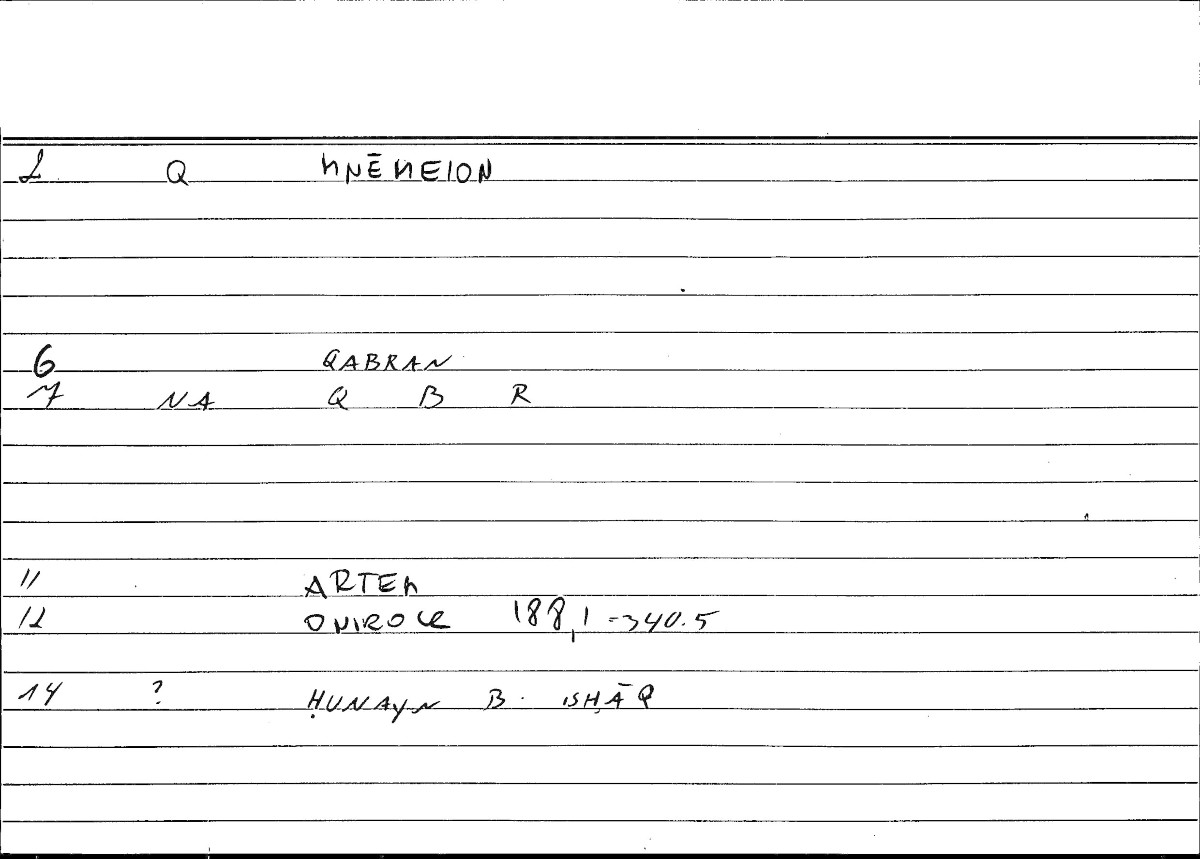 2 Q MNĒMEION
6 QABRAN
7 NA Q B R
11 ARTEM
12 ONIROCR 188,1 = 340.5
14 ? ḤUNAYN B. ISḤĀQ